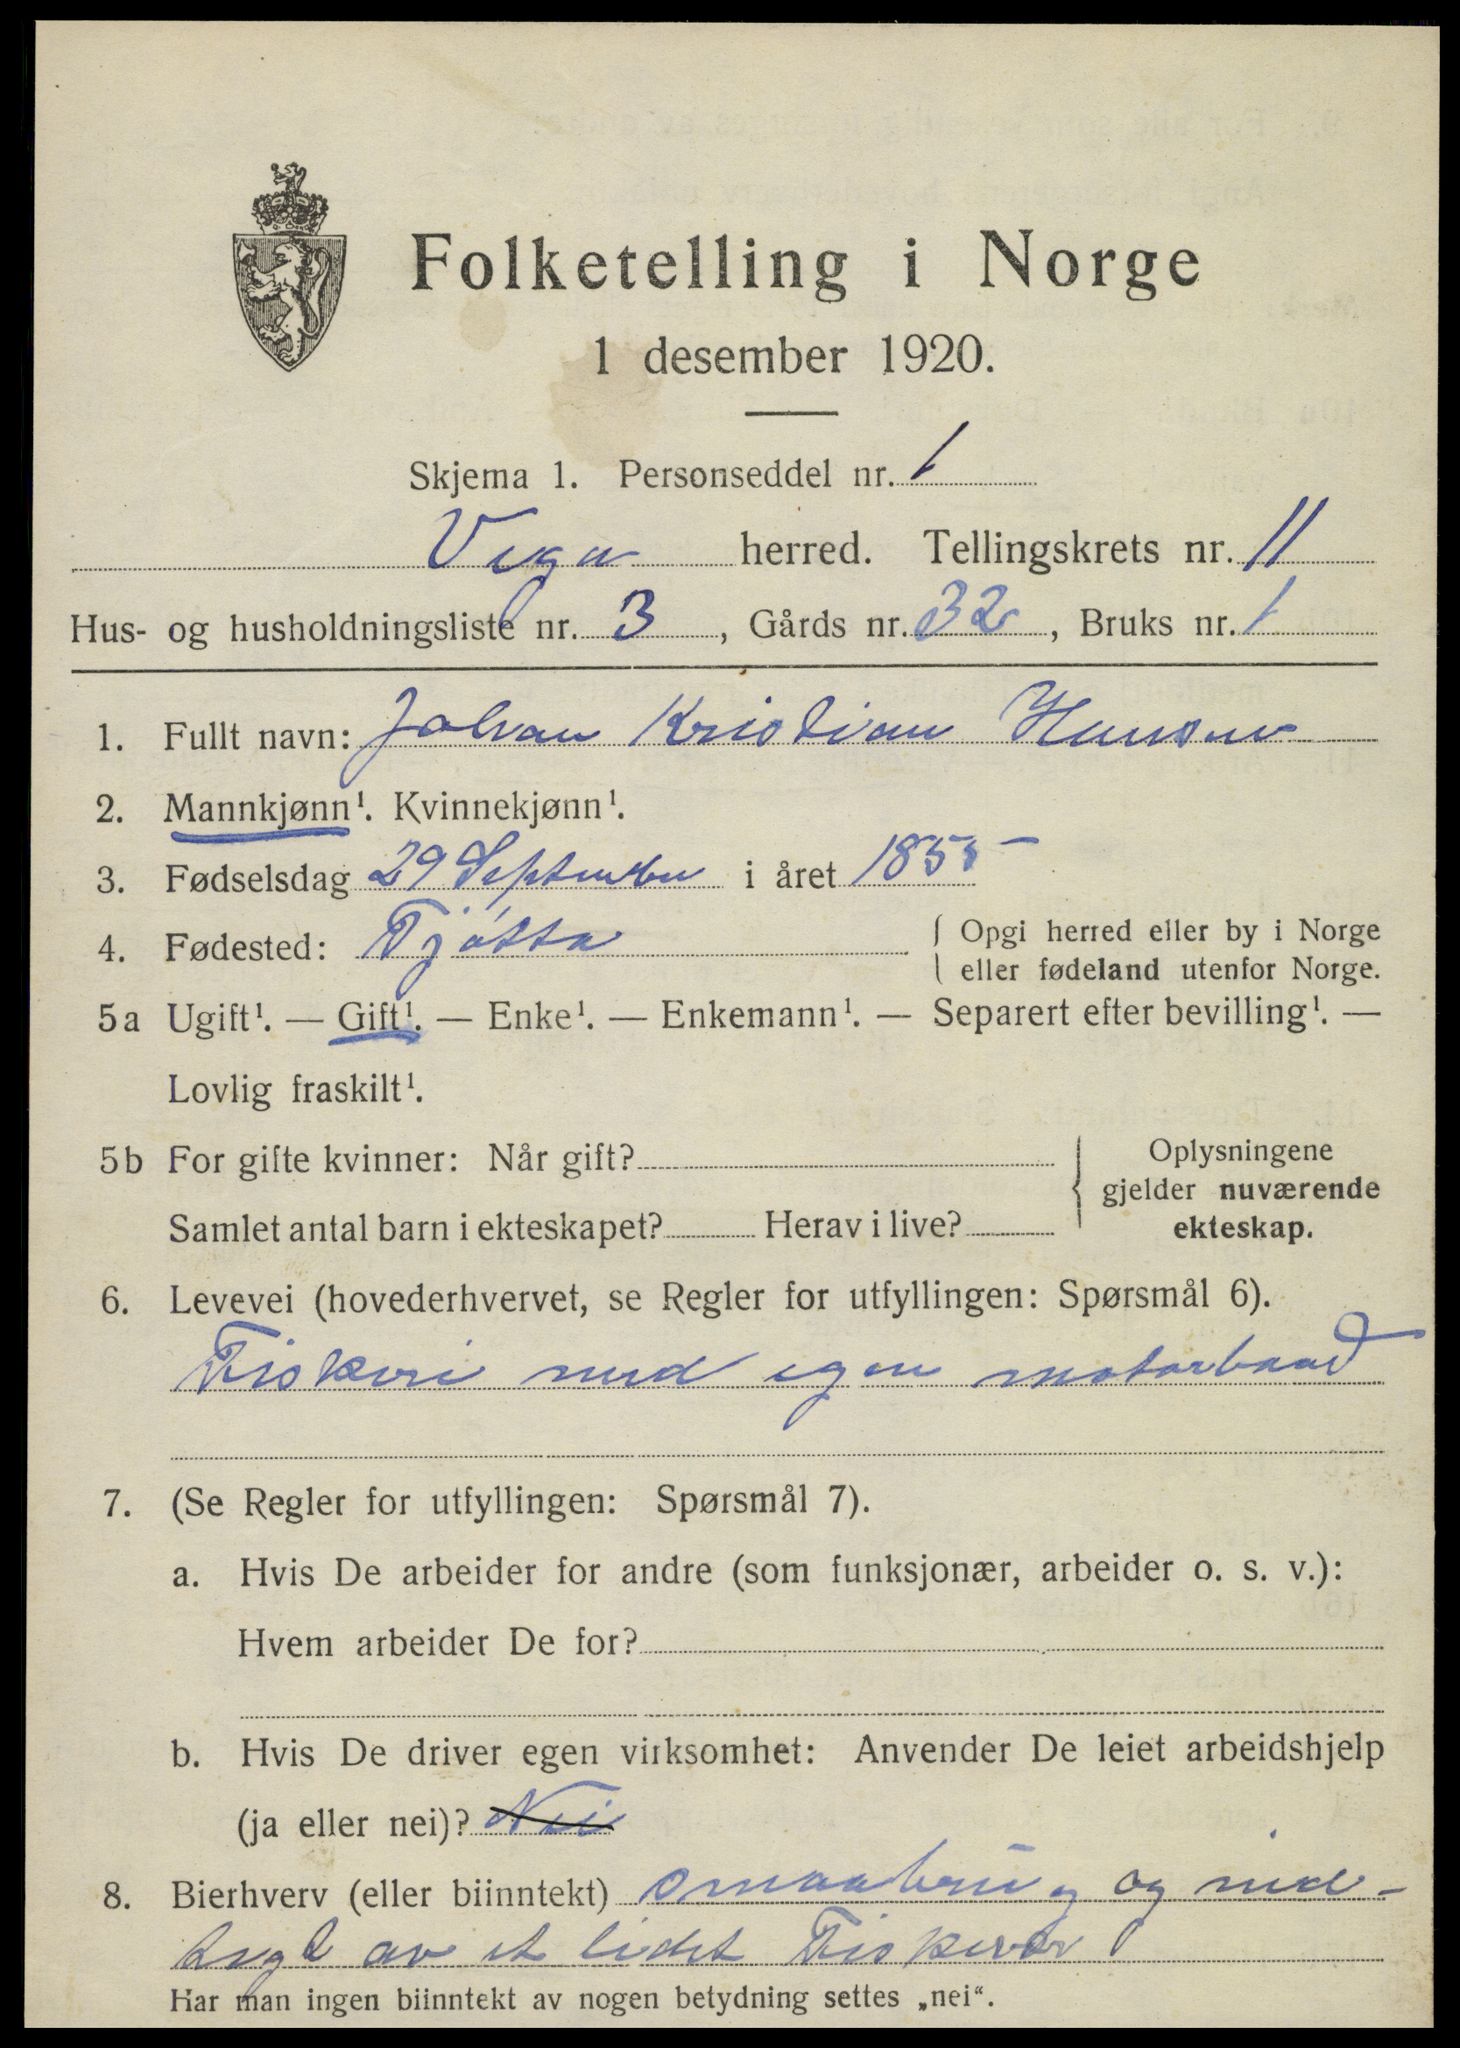 Folketelling i Norge
1 desember 1920.
Skjema 1. Personseddel nr. 1
Vega herred. Tellingskrets nr. 11
Hus- og husholdningsliste nr. 3, Gårds nr. 32, Bruks nr. 1
1. Fullt navn: Johan Kristian Hansen
2. Mannkjønn¹. Kvinnekjønn¹.
3. Fødselsdag 29 September i året 1855
4. Fødested: Tjøtta { Opgi herred eller by i Norge
eller fødeland utenfor Norge.
5a Ugift¹. — Gift¹. — Enke¹. — Enkemann¹. — Separert efter bevilling¹. —
Lovlig fraskilt¹.
5b For gifte kvinner: Når gift? { Oplysningene
gjelder nuværende
Samlet antal barn i ekteskapet? Herav i live? ekteskap.
6. Levevei (hovederhvervet, se Regler for utfyllingen: Spørsmål 6).
Fiskeri med egen motorbaad
7. (Se Regler for utfyllingen: Spørsmål 7).
a. Hvis De arbeider for andre (som funksjonær, arbeider o. s. v.):
Hvem arbeider De for?
b. Hvis De driver egen virksomhet: Anvender De leiet arbeidshjelp
(ja eller nei)? Nei
8. Bierhverv (eller biinntekt) smaabrug og ind-
tegt av et lidet Fiskevær
Har man ingen biinntekt av nogen betydning settes „nei“.